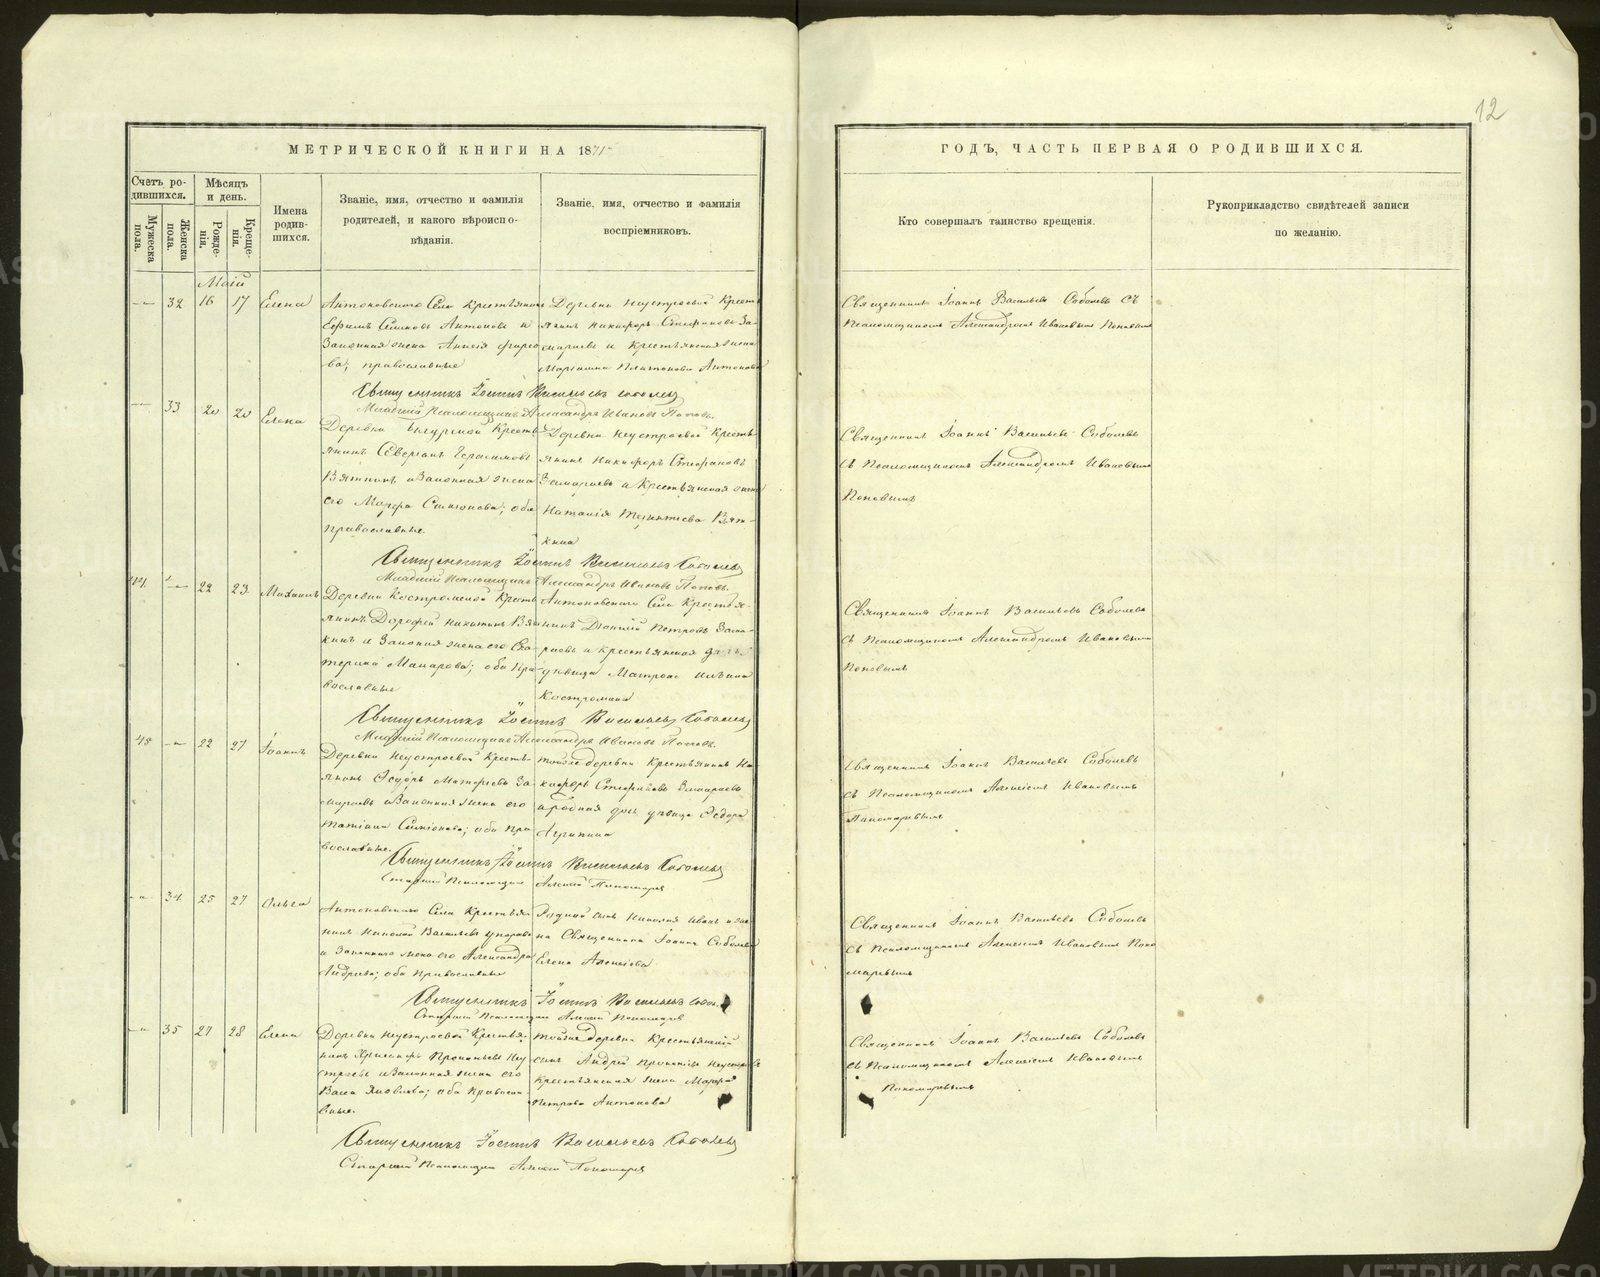 12
МЕТРИЧЕСКОЙ КНИГИ НА 1871
ГОДЪ, ЧАСТЬ ПЕРВАЯ О РОДИВШИХСЯ.
Счетъ родившихся.
Мужеска пола.
Женска пола.
Мѣсяцъ и день.
Рожденія.
Крещенія.
Имена родившихся.
Званіе, имя, отчество и фамилія
родителей, и какого вѣроиспо-
вѣданія.
Званіе, имя, отчество и фамилія
воспріемниковъ.
Кто совершалъ таинство крещенія.
Рукоприкладство свидѣтелей записи
по желанію.
Маій
32 16 17 Елена
Антоновского Села Крестьянинъ
Ефимъ Антоновъ и
Законная жена
православные
Деревни Неустроевой Кресть
янинъ Никифоръ Стефановъ За
мараевъ и Крестьянская жена
Платонова Антонова
Священникъ Іоаннъ Васильевъ Соболевъ съ
Псаломщикомъ Александромъ Ивановымъ Поповымъ
Священникъ Іоаннъ Васильевъ Соболевъ
Младшій Псаломщикъ Александръ Ивановъ Поповъ.
33 20 20 Елена
Деревни Кресть
янинъ Северіанъ Герасимовъ
Вяткинъ и Законная жена
его Марфа Симіонова; оба
православные.
Деревни Неустроевой Кресть
янинъ Никифоръ Стефановъ
Замараевъ и Крестьянская жена
Наталія Вят-
кина
Священникъ Іоаннъ Васильевъ Соболевъ
съ Псаломщикомъ Александромъ Ивановымъ
Поповымъ
Священникъ Іоаннъ Васильевъ Соболевъ
Младшій Псаломщикъ Александръ Ивановъ Поповъ.
44 22 23 Михаилъ
Деревни Костроминой Кресть
янинъ Дорофей Никитинъ Вят
кинъ и Законная жена его Ека
терина Макарова; оба пра-
вославные
Антоновского Села Крестья-
нинъ Петровъ Зама-
раевъ и Крестьянская дочь
дѣвица Матрона Ильина
Костромина
Священникъ Іоаннъ Васильевъ Соболевъ
съ Псаломщикомъ Александромъ Ивановымъ
Поповымъ
Священникъ Іоаннъ Васильевъ Соболевъ
Младшій Псаломщикъ Александръ Ивановъ Поповъ.
45 22 27 Іоаннъ
Деревни Неустроевой Кресть
янинъ Ѳедоръ Матфеевъ За
мараевъ и Законная жена его
Татіана Симіонова; оба пра
вославные.
тойже деревни Крестьянинъ Ни
кифоръ Стефановъ Замараевъ
и родная дочь дѣвица Ѳедора
Агрипина
Священникъ Іоаннъ Васильевъ Соболевъ
съ Псаломщикомъ Алексіемъ Ивановымъ
Пономаревымъ
Священникъ Іоаннъ Васильевъ Соболевъ
Старшій Псаломщикъ Алексій Пономаревъ
34 25 27 Ольга
Антоновского Села Крестья
нинъ Николай Васильевъ
и Законная жена его Александра
Андреева; оба православные
Родной сынъ Николая Иванъ и же
на Священника Іоанна Соболева
Елена Алексіева
Священникъ Іоаннъ Васильевъ Соболевъ
съ Псаломщикомъ Алексіемъ Ивановымъ Поно
маревымъ
Священникъ Іоаннъ Васильевъ Собол.
Старшій Псаломщикъ Алексій Пономаревъ
35 27 28 Елена
Деревни Неустроевой Крестья
нинъ Прокопьевъ Неу
строевъ и Законная жена его
Васса Яковлева; оба Правосла
вные.
тойже деревни Крестьянскій
сынъ Андрей Неустроевъ
Крестьянская жена Марфа
Петрова Антонова
Священникъ Іоаннъ Васильевъ Соболевъ
съ Псаломщикомъ Алексіемъ Ивановымъ
Пономаревымъ
Священникъ Іоаннъ Васильевъ Соболевъ
Старшій Псаломщикъ Алексій Пономаревъ